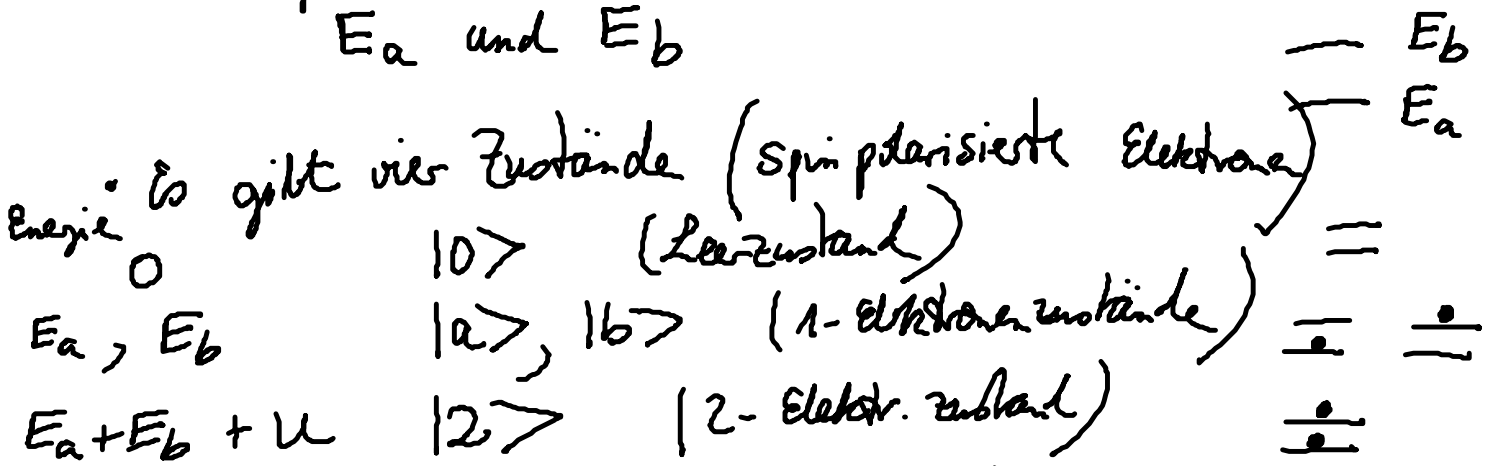 E_a und E_b E_b
E_a
Es gibt vier Zustände (spinpolarisierte Elektronen)
Energie
0 |0> (Leerzustand)
E_a, E_b |a>, |b> (1-Elektronenzustände)
E_a+E_b + U |2> (2-Elektr. zustand)